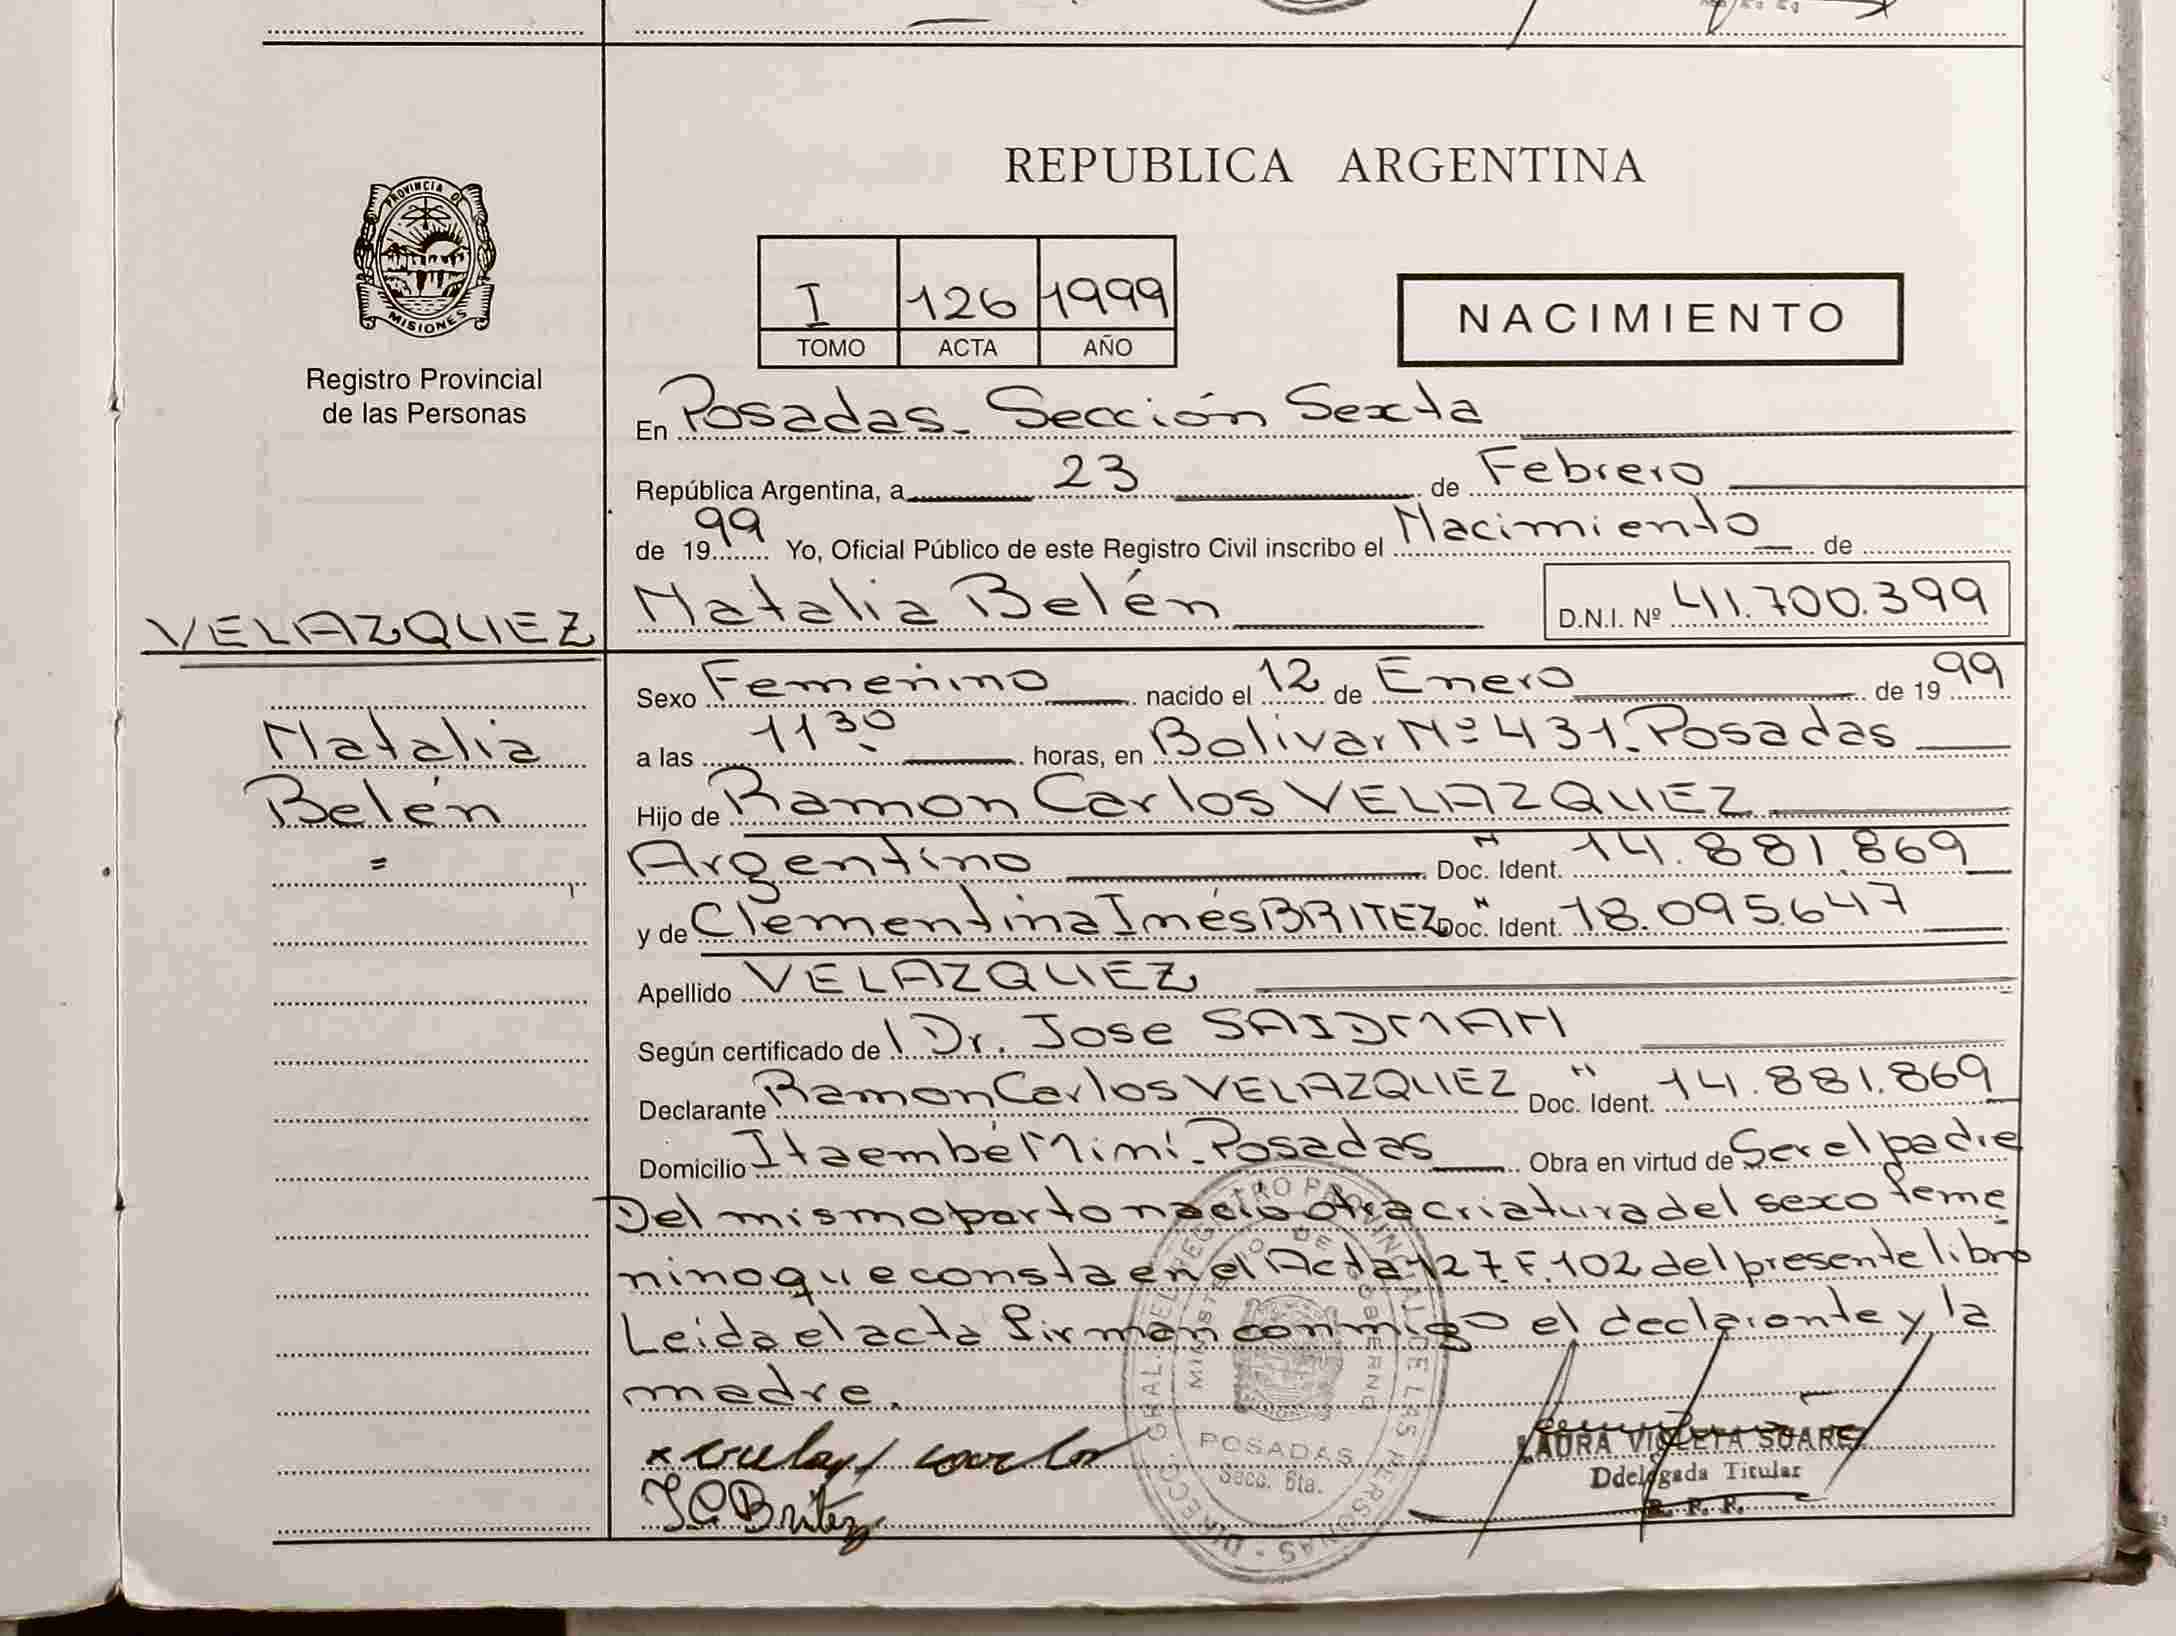 PROVINCIA DE
MISIONES
Registro Provincial
de las Personas
REPUBLICA ARGENTINA
I 126 1999
TOMO ACTA AÑO
NACIMIENTO
En Posadas_ Sección Sexta
República Argentina, a 23 de Febrero
de 1999 Yo, Oficial Público de este Registro Civil inscribo el Nacimiento de
VELAZQUEZ
Natalia Belén D.N.I. Nº 41.700.399
Natalia
Belén
=
Sexo Femenino nacido el 12 de Enero de 1999
a las 11 30 horas, en Bolivar Nº 431. Posadas
Hijo de Ramon Carlos VELAZQUEZ
Argentino Doc. Ident. 14.881.869
y de Clementina Inés BRITEZ Doc. Ident. 18.095.647
Apellido VELAZQUEZ
Según certificado de Dr. Jose SAIDMAN
Declarante Ramon Carlos VELAZQUEZ Doc. Ident. 14.881.869
Domicilio Itaembé Mini. Posadas Obra en virtud de Ser el padre
Del mismo parto nacio otra criatura del sexo feme
nino que consta en el Acta 127. F. 102 del presente libro
Leida el acta firman conmigo el declarante y la
madre.
DIRECC. GRAL. DEL REGISTRO PROVINCIAL DE LAS PERSONAS
MINISTERIO DE GOBIERNO
POSADAS
Secc. 6ta.
I C Britez
LAURA VIOLETA SUAREZ
Ddelegada Titular
R. P. P.